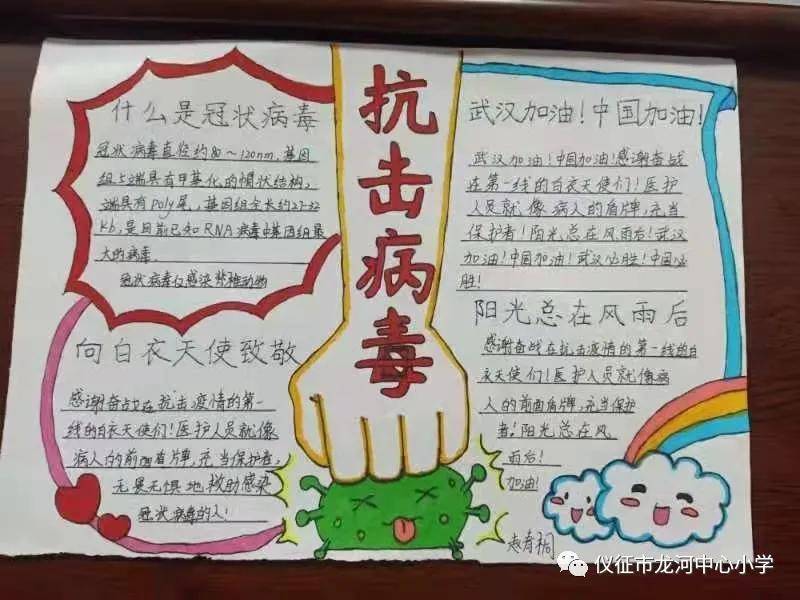 抗击病毒
什么是冠状病毒
冠状病毒直径约80～120nm,基因
组5端具有甲基化的帽状结构,
端具有Poly尾,基因组全长约27-32
kb,是目前已知RNA病毒中基因组最
大的病毒.
冠状病毒仅感染脊椎动物
向白衣天使致敬
感谢奋战在抗击疫情的第一
线的白衣天使们！医护人员就像
病人的前面盾牌,充当保护者,
无畏无惧地救助感染
冠状病毒的人!
武汉加油!中国加油!
武汉加油!中国加油!感谢奋战
在第一线的白衣天使们！医护
人员就像病人的盾牌,充当
保护者!阳光总在风雨后!武汉
加油!中国加油!武汉必胜!中国必
胜!
阳光总在风雨后
感谢奋战在抗击疫情的第一线的白
衣天使们!医护人员就像病
人的前面盾牌,充当保护
者!阳光总在风
雨后!
加油!
仪征市龙河中心小学